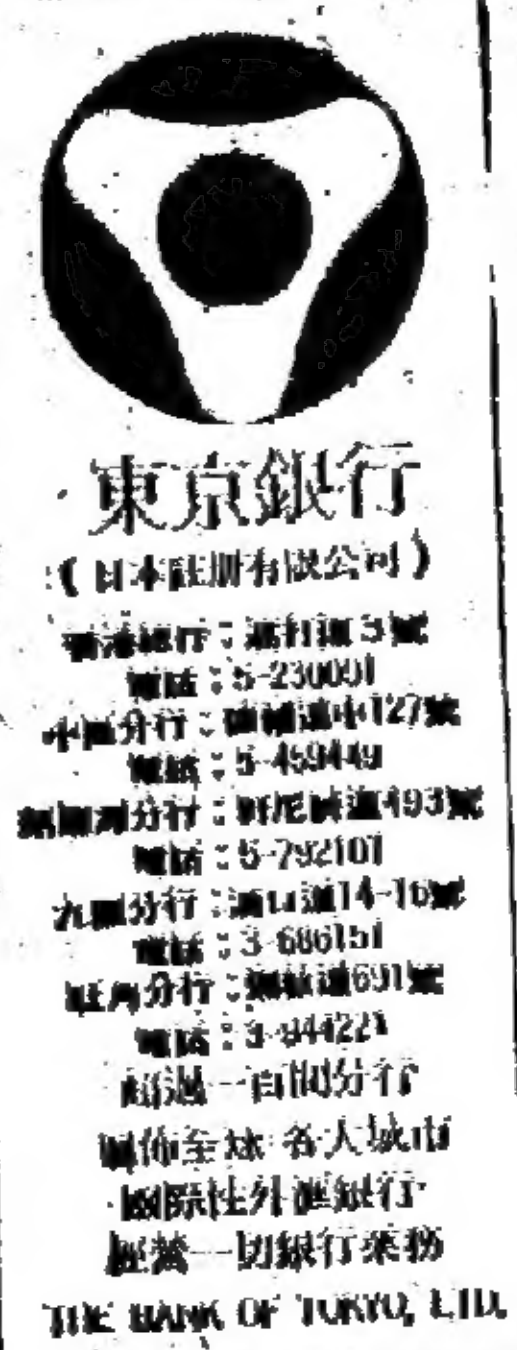 東京銀行
(日本註冊有限公司)
香港總行：遮打道3號
電話：5-230001
中區分行：德輔道中127號
電話：5-459449
銅鑼灣分行：軒尼詩道493號
電話：5-792101
九龍分行：漢口道14-16號
電話：3-686151
旺角分行：彌敦道691號
電話：3-944221
超過一百間分行
遍佈全球各大城市
國際性外滙銀行
經營一切銀行業務
THE BANK OF TOKYO, LTD.